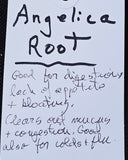 Angelica
Root
Good for digestion,
lack of appetite
+ bloating.
Clears out mucus
+ congestion. Good
also for colds + flu